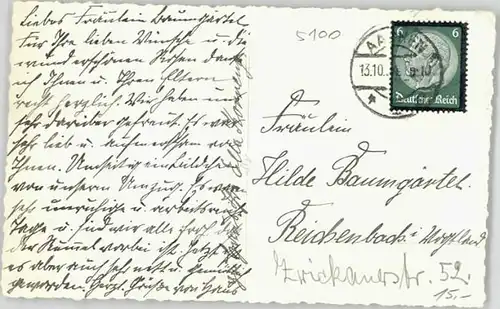 Liebes Fräulein Baumgärtel
für Ihre lieben Wünsche u. die
wunderschönen Rosen danke
ich Ihnen u. Ihren Eltern
recht herzlich. Wir haben uns
sehr darüber gefreut. Es war
sehr lieb u. aufmerksam von
Ihnen. Umseitig ein Bildchen
von unserm Umzug. Es war
sehr unruhige u. arbeitsreiche
Tage u. sind wir alle froh daß
der Rummel vorbei ist. Jetzt ist
es aber auch sehr nett u. gemütlich
geworden. Herzl. Grüße von Haus
5100
13.10.
6 6
Deutsches Reich
Fräulein
Hilde Baumgärtel
Reichenbach i. Vogtland
Zwickauerstr. 52.
15,-